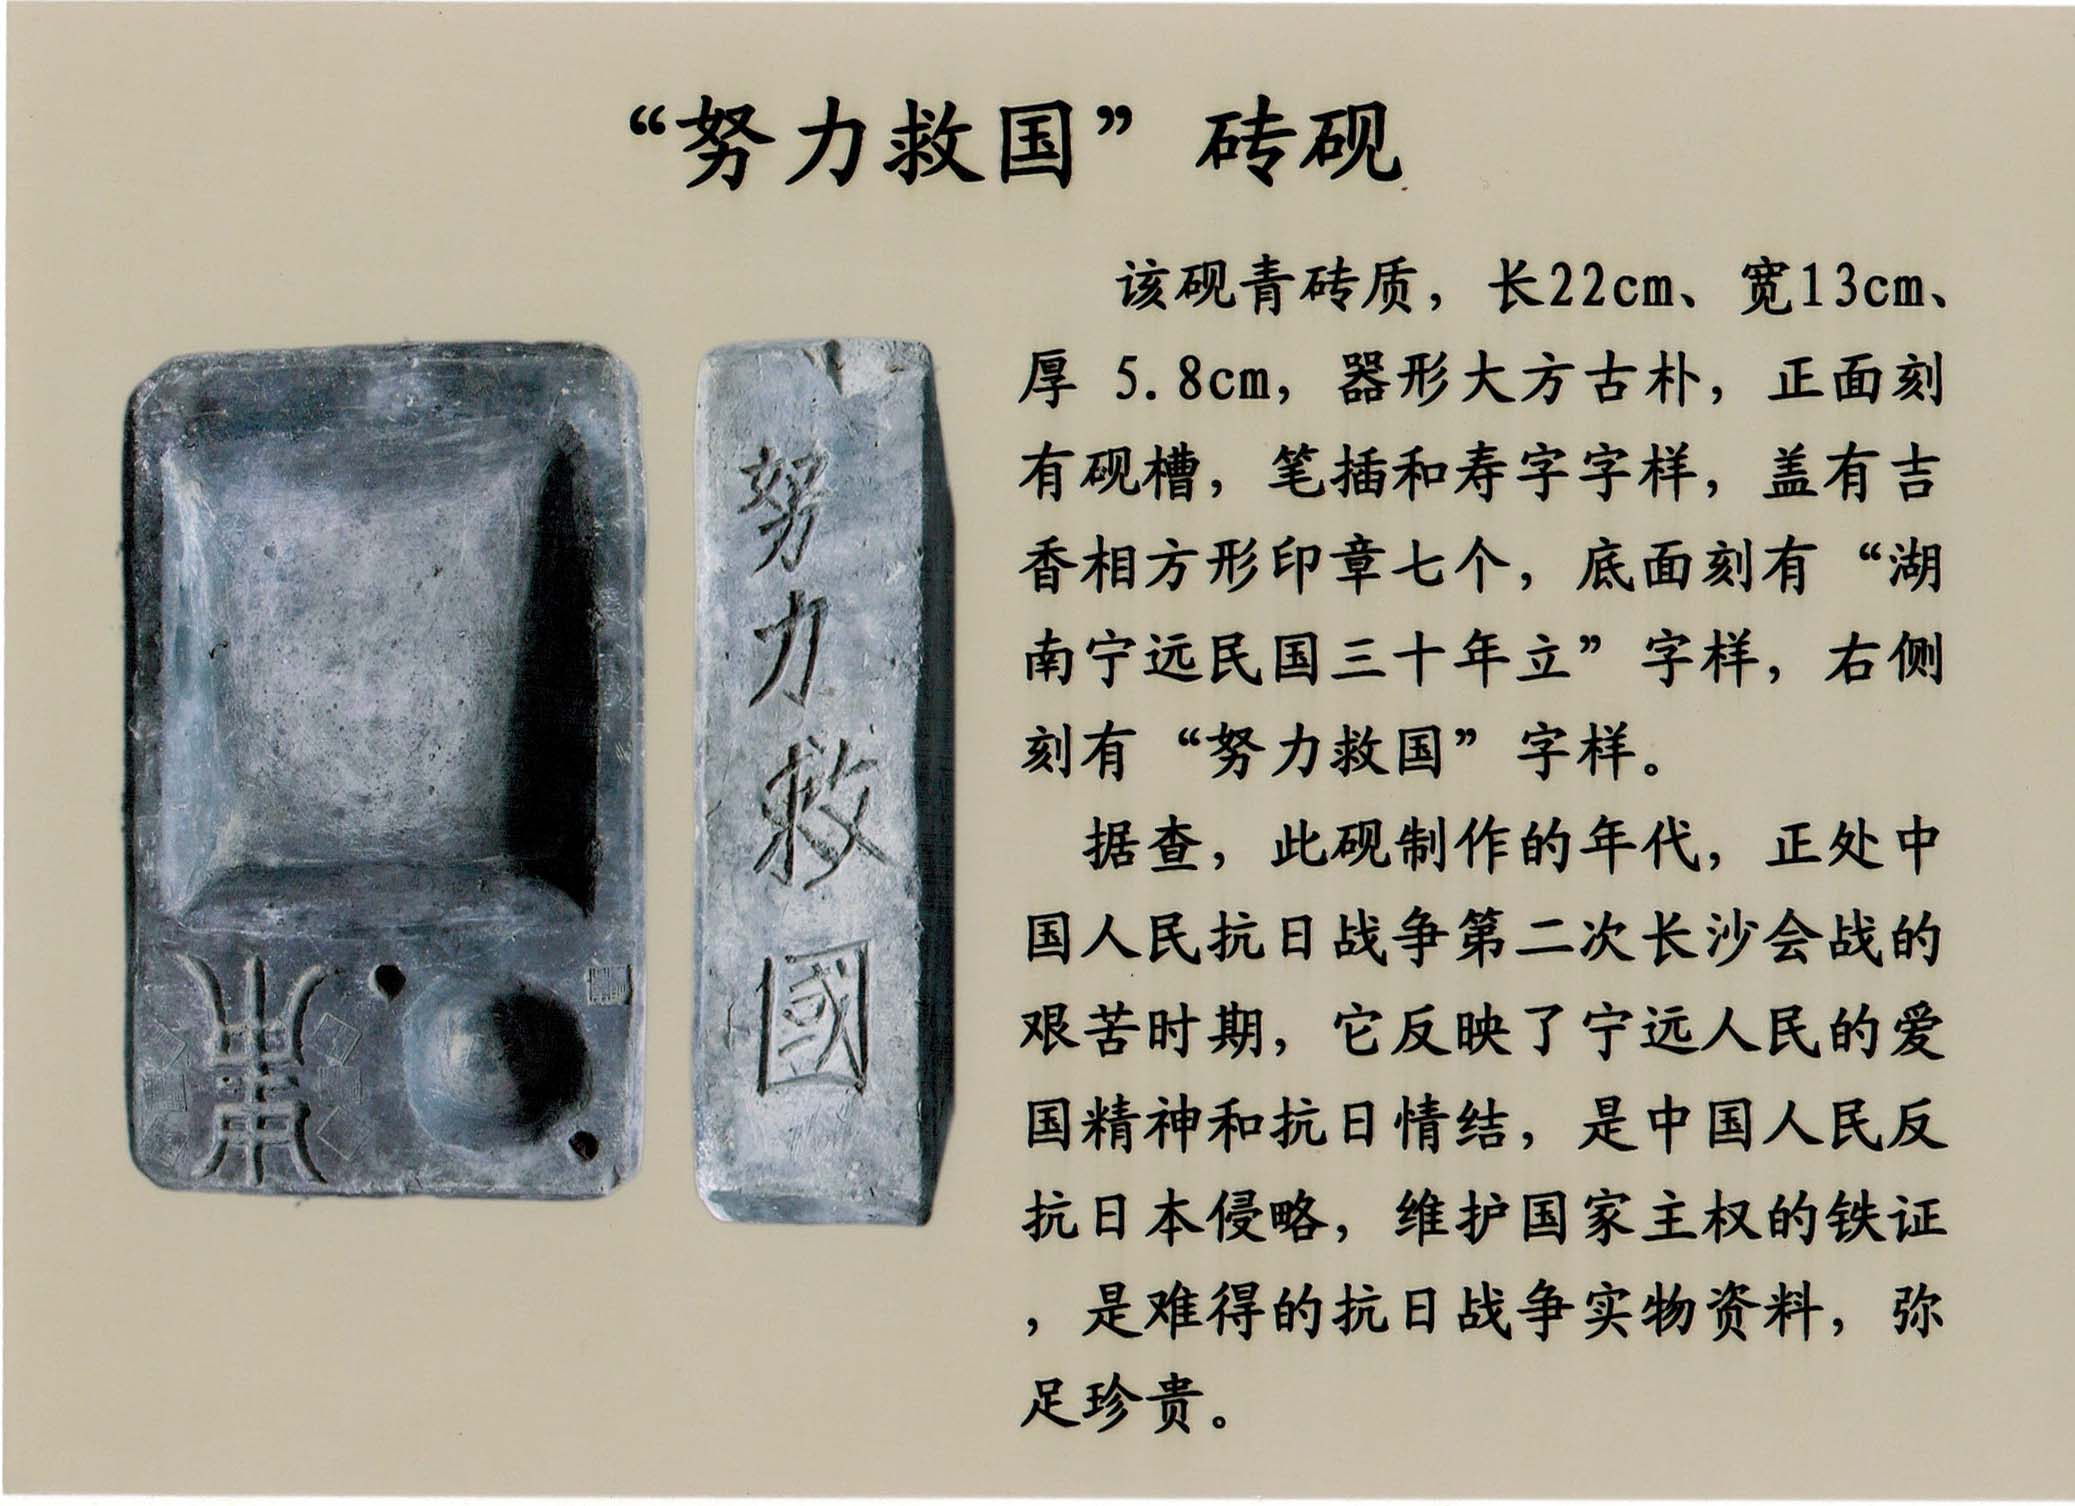 “努力救国”砖砚
该砚青砖质，长22cm、宽13cm、
厚 5.8cm，器形大方古朴，正面刻
有砚槽，笔插和寿字字样，盖有吉
香相方形印章七个，底面刻有“湖
南宁远民国三十年立”字样，右侧
刻有“努力救国”字样。
据查，此砚制作的年代，正处中
国人民抗日战争第二次长沙会战的
艰苦时期，它反映了宁远人民的爱
国精神和抗日情结，是中国人民反
抗日本侵略，维护国家主权的铁证
，是难得的抗日战争实物资料，弥
足珍贵。
努力救國